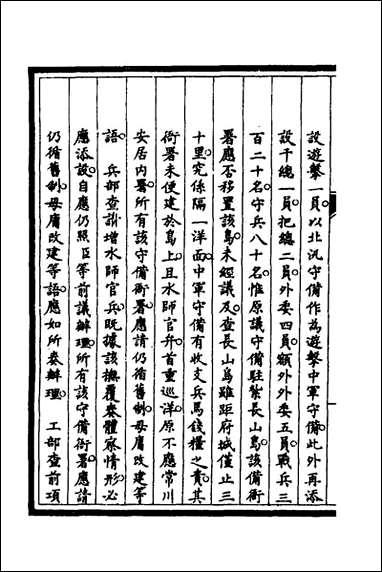 設遊擊一員。以北汛守備作為遊擊中軍守備。此外再添
設千總一員。把總二員。外委四員。額外外委五員。戰兵三
百二十名。守兵八十名。惟原議守備駐紮長山島。該備衙
署應否移置該島。未經議及。查長山島雖距府城僅止三
十里。究係隔一洋面。中軍守備有收支兵馬錢糧之責。其
衙署未便建於島上。且水師官弁。首重巡洋。原不應常川
安居内署。所有該守備衙署。應請仍循舊制。毋庸改建等
語。 兵部查該增水師官兵。既據該撫覆奏體察情形。必
應添設。自應仍照臣等前議辦理。所有該守備衙署。應請
仍循舊制。毋庸改建等語。應如所奏辦理。 工部查前項